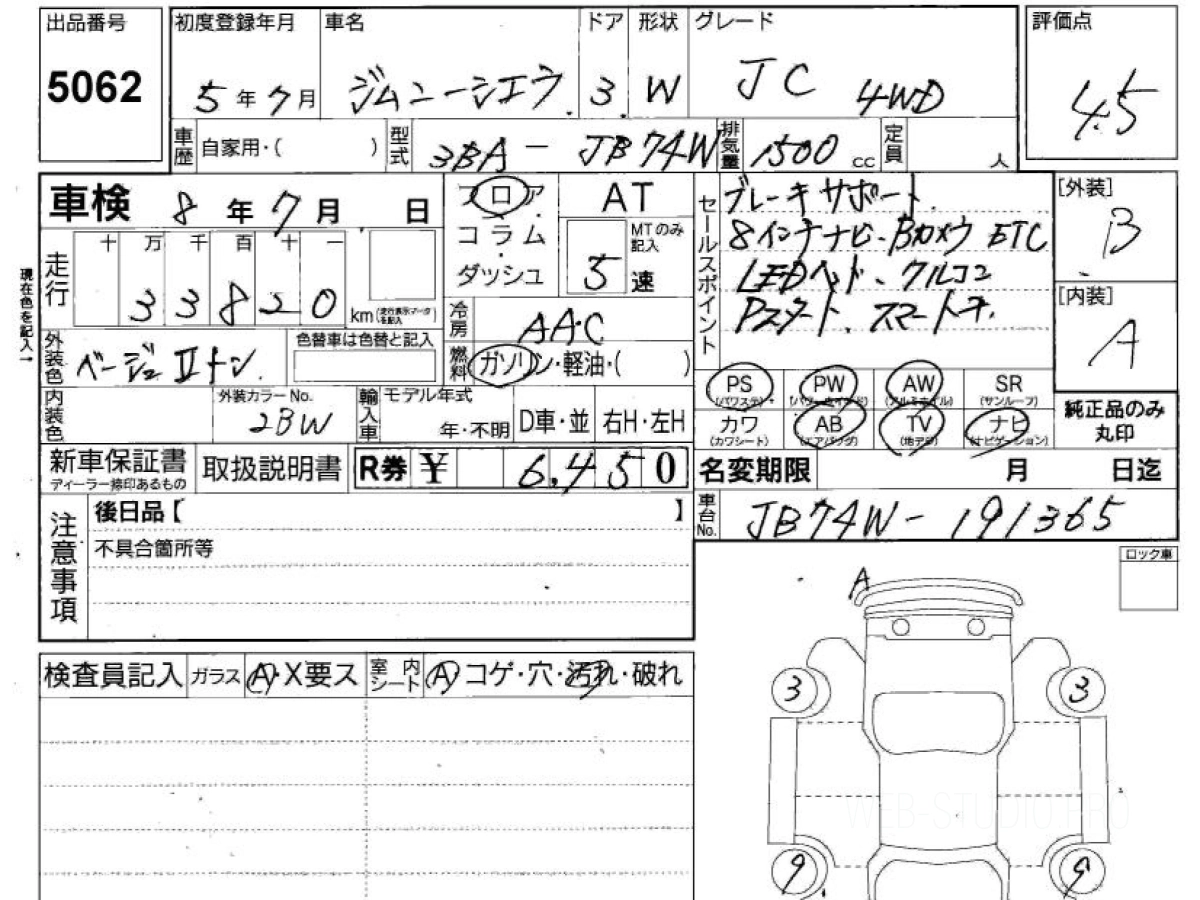 出品番号 初度登録年月 車名 ドア 形状 グレード 評価点
5062 5年7月 ジムニーシエラ 3 W JC 4WD 4.5
車歴 自家用・( ) 型式 3BA - JB74W 排気量 1500 cc 定員 人
車検 8年7月 日 フロア AT セールスポイント ブレーキサポート [外装]
コラム MTのみ記入 8インチナビ・Bカメラ ETC B
走行 十 万 千 百 十 一 ダッシュ 5速 LEDヘッド、クルコン
現在色を記入→ 33820 km (走行表示マータ)を記入 冷房 AAC Pスタート、スマートキー [内装]
外装色 ベージュⅡトン 色替車は色替と記入 燃料 ガソリン・軽油・( ) A
PS (パワステ) PW (パワーウインド) AW (アルミホイル) SR (サンルーフ)
内装色 外装カラーNo. 2BW 輸入車 モデル年式 年・不明 D車・並 右H・左H カワ (カワシート) AB (エアバッグ) TV (地デジ) ナビ (ナビゲーション) 純正品のみ丸印
新車保証書 ディーラー捺印あるもの 取扱説明書 R券 ¥ 6,450 名変期限 月 日迄
注意事項 後日品【 】 車台No. JB74W-191365
不具合箇所等
ロック車
A
検査員記入 ガラス A・X要ス 室内シート A コゲ・穴・汚れ・破れ
3 3
WEB-STUDIO.PRO
9 9